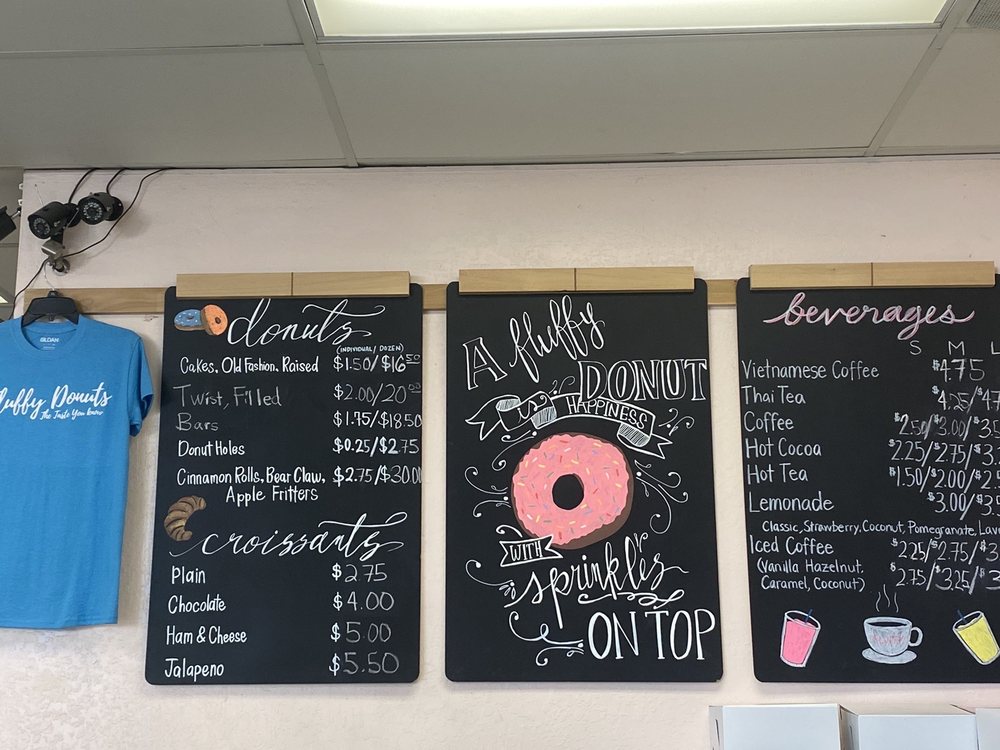 GILDAN
Fluffy Donuts
The Taste You Know
donuts
(INDIVIDUAL / DOZEN)
Cakes, Old Fashion, Raised $1.50/$16.50
Twist, Filled $2.00/20
Bars $1.75/$18.50
Donut Holes $0.25/$2.75
Cinnamon Rolls, Bear Claw, $2.75/$30.00
Apple Fritters
croissants
Plain $2.75
Chocolate $4.00
Ham & Cheese $5.00
Jalapeno $5.50
A fluffy
DONUT
IS HAPPINESS
WITH
sprinkles
ON TOP
beverages
S M L
Vietnamese Coffee $4.75
Thai Tea $4.25/$4.7
Coffee $2.50/$3.00/$3.5
Hot Cocoa 2.25/$2.75/$3.
Hot Tea $1.50/$2.00/$2.5
Lemonade $3.00/$3.5
Classic, Strawberry, Coconut, Pomegranate, Lave
Iced Coffee $2.25/$2.75/$3
(Vanilla, Hazelnut, $2.75/$3.25/$3
Caramel, Coconut)